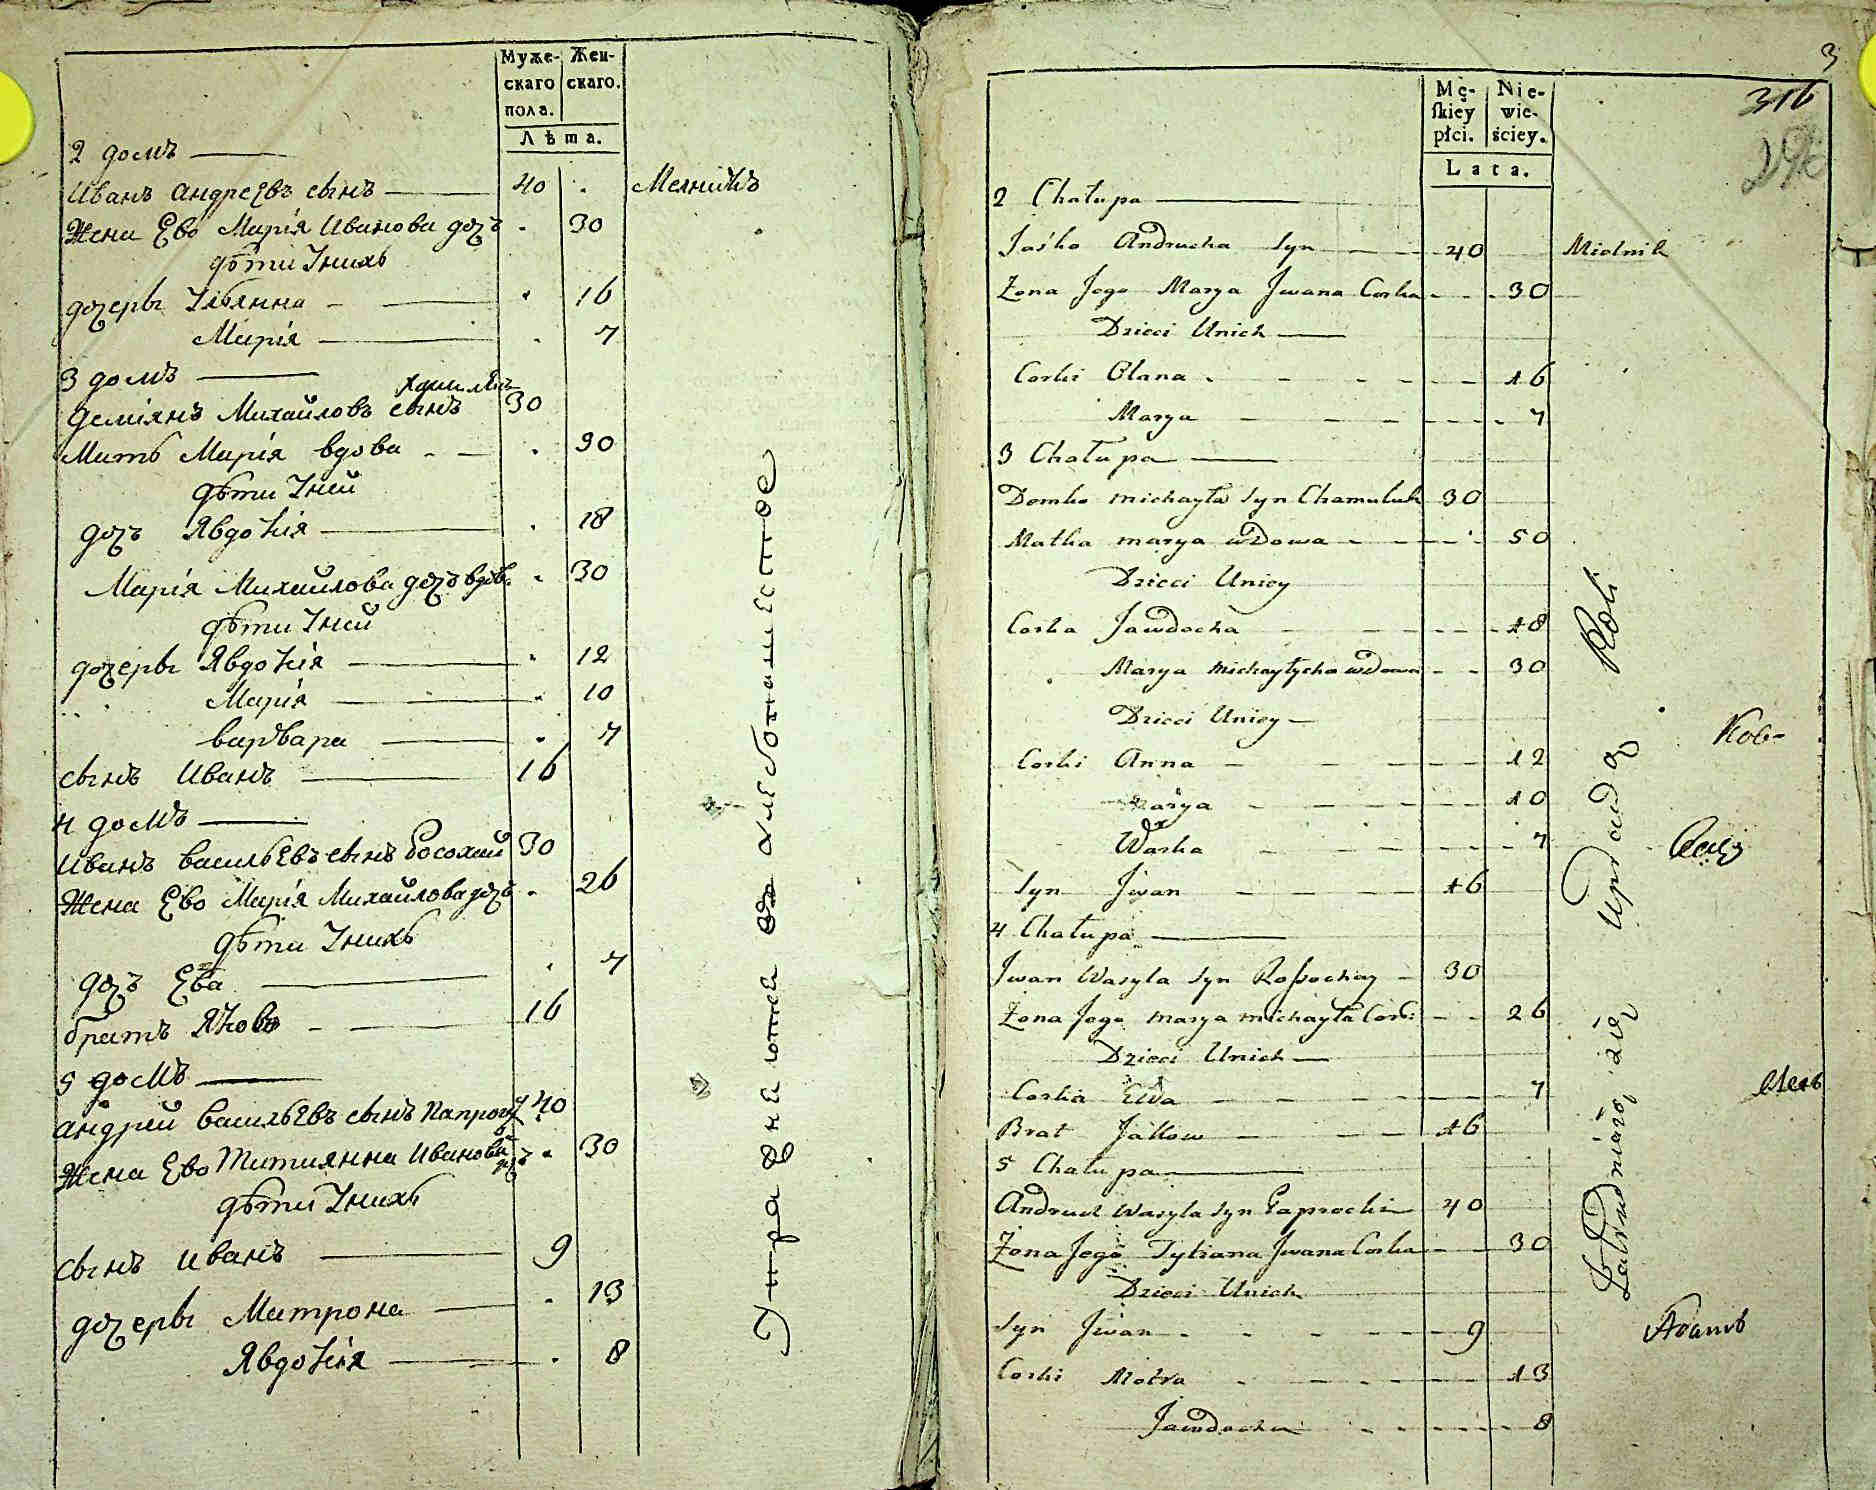 Муже-
скаго
пола.
Жен-
скаго.
Лѣта.
2 домъ
Иванъ Андреевъ сынъ 40 Мелникъ
Жена Ево Марія Иванова доч 30
дѣти Уних
дочеры Ульянна 16
Марія 7
3 домъ
Деміянъ Михайловъ сынъ 30
Мать Марія вдова 50
дѣти Уней
доч Явдокія 18
Марія Михайлова доч вдова 30
дѣти Уней
дочеры Явдокія 12
Марія 10
варвара 7
сынъ Иванъ 16
4 домъ
Иванъ Васильевъ сынъ Росохай 30
Жена Ево Марія Михайлова доч 26
дѣти Уних
доч Ева 7
братъ Яковъ 16
5 домъ
Андрей Васильевъ сынъ 40
Жена Ево Татиянна Иванова доч 30
дѣти Уних
сынъ Иванъ 9
дочеры Матрона 13
Явдокія 8
Упражняютца в хлебопашестве
3
316
Mę-
skiey
płci.
Nie-
wie-
ściey.
Lata.
2 Chałupa
Jaśko Andrucha Syn 40 Mielnik
Żona Jego Marya Jwana Corka 30
Dzieci Unich
Corki Olana 16
Marya 7
3 Chałupa
Demko Michayła Syn Chamuluk 30
Matka Marya wdowa 50
Dzieci Uniey
Corka Jawdocha 18
Marya Michayłycha wdowa 30
Dzieci Uniey
Corki Anna 12
Marya 10
Warka 7
Syn Jwan 16
4 Chałupa
Jwan Wasyla Syn Rossochay 30
Żona Jego Marya Michayła Cor: 26
Dzieci Unich
Corka Ewa 7
Brat Jakow 16
5 Chałupa
Andruch Wasyla Syn Paprocki 40
Żona Jego Tytiana Jwana Corka 30
Dzieci Unich
Syn Jwan 9
Corki Motra 13
Jawdocha 8
Zatrudniaią się uprawą Roli
Ков-